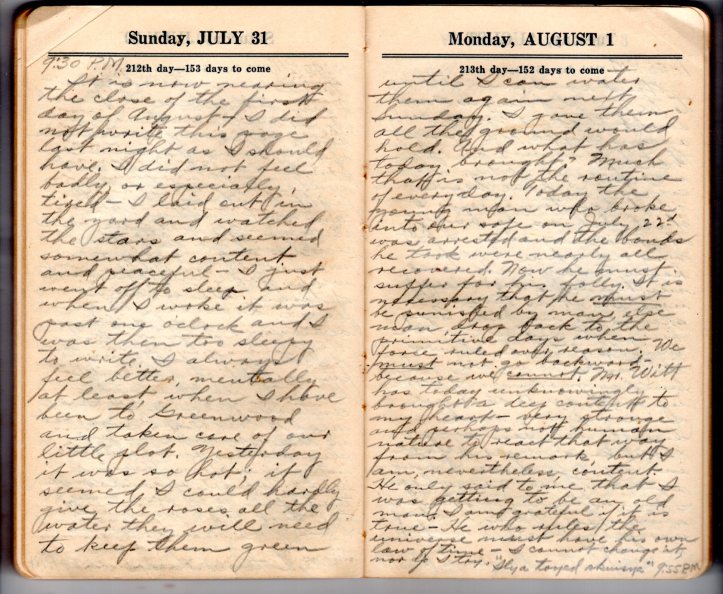 Sunday, JULY 31
212th day—153 days to come
9:30 P.M.
It is now nearing
the close of the first
day of August - I did
not write this page
last night as I should
have. I did not feel
badly or especially
tired - I laid out in
the yard and watched
the stars and seemed
somewhat content
and peaceful - I just
went off to sleep and
when I woke it was
past one o'clock and I
was then too sleepy
to write. I always
feel better, mentally
at least when I have
been to Greenwood
and taken care of our
little plot. Yesterday
it was so hot, it
seemed I could hardly
give the roses all the
water they will need
to keep them green
Monday, AUGUST 1
213th day—152 days to come
until I can water
them again next
Sunday. I gave them
all the ground would
hold. And what has
today brought? Much
that is not the routine
of everyday. Today the
young man who broke
into our safe on July 22d
was arrested and the bonds
he took were nearly all
recovered. Now he must
suffer for his folly. It is
necessary that he must
be punished by man, else
man drop back to the
primitive days when
force ruled only reason. We
must not go backward -
because we cannot. Mr. Witt
has today unknowingly
brought a deep content to
my heart - very strange
and perhaps not human
nature to react that way
from his remark, but I
am, nevertheless, content.
He only said to me that I
was getting to be an old
man. I am grateful if it is
true - He who rules the
universe must have his own
law of time - I cannot change it,
nor do I try.
9:55 P.M.